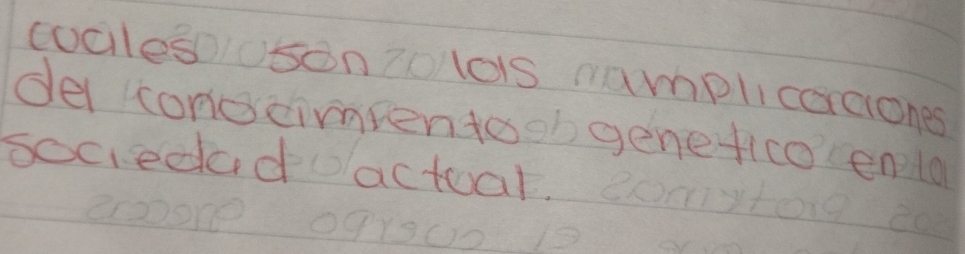 coales son las amplicaciones
del conocimiento genetico en la
sociedad actual.